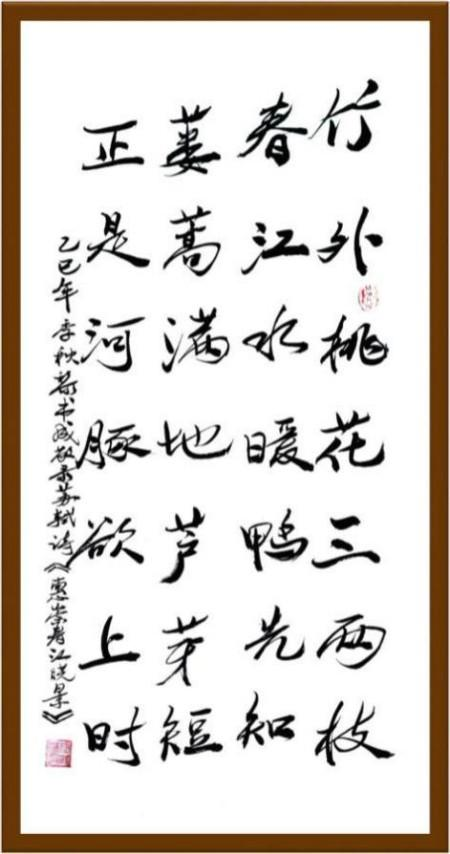 竹外桃花三两枝
春江水暖鸭先知
蒌蒿满地芦芽短
正是河豚欲上时
乙巳年季秋蔡书成敬录苏轼诗《惠崇春江晓景》